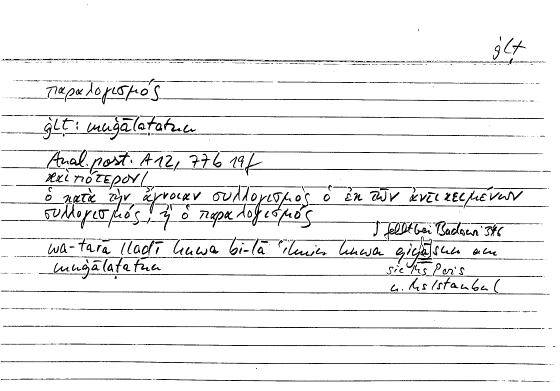 ġlṭ
παραλογισμός
ġlṭ : muġālaṭatun
Anal. post. A 12, 77b 19f
καὶ πότερον/
ὁ κατὰ τὴν ἄγνοιαν συλλογισμὸς ὁ ἐκ τῶν ἀντικειμένων
συλλογισμός, ἢ ὁ παραλογισμός
fehlt bei Badawi 346
wa-tarā llaḏī huwa bi-lā ʿilmin huwa qiyāsun am
muġālaṭatun
sic Hs Paris
u. Hs Istanbul